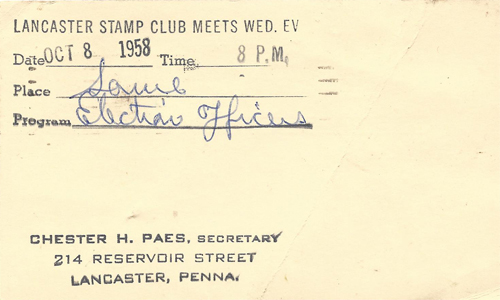 LANCASTER STAMP CLUB MEETS WED. EV
Date OCT 8 1958 Time 8 P.M.
Place Same
Program Election Officers
CHESTER H. PAES, SECRETARY
214 RESERVOIR STREET
LANCASTER, PENNA.